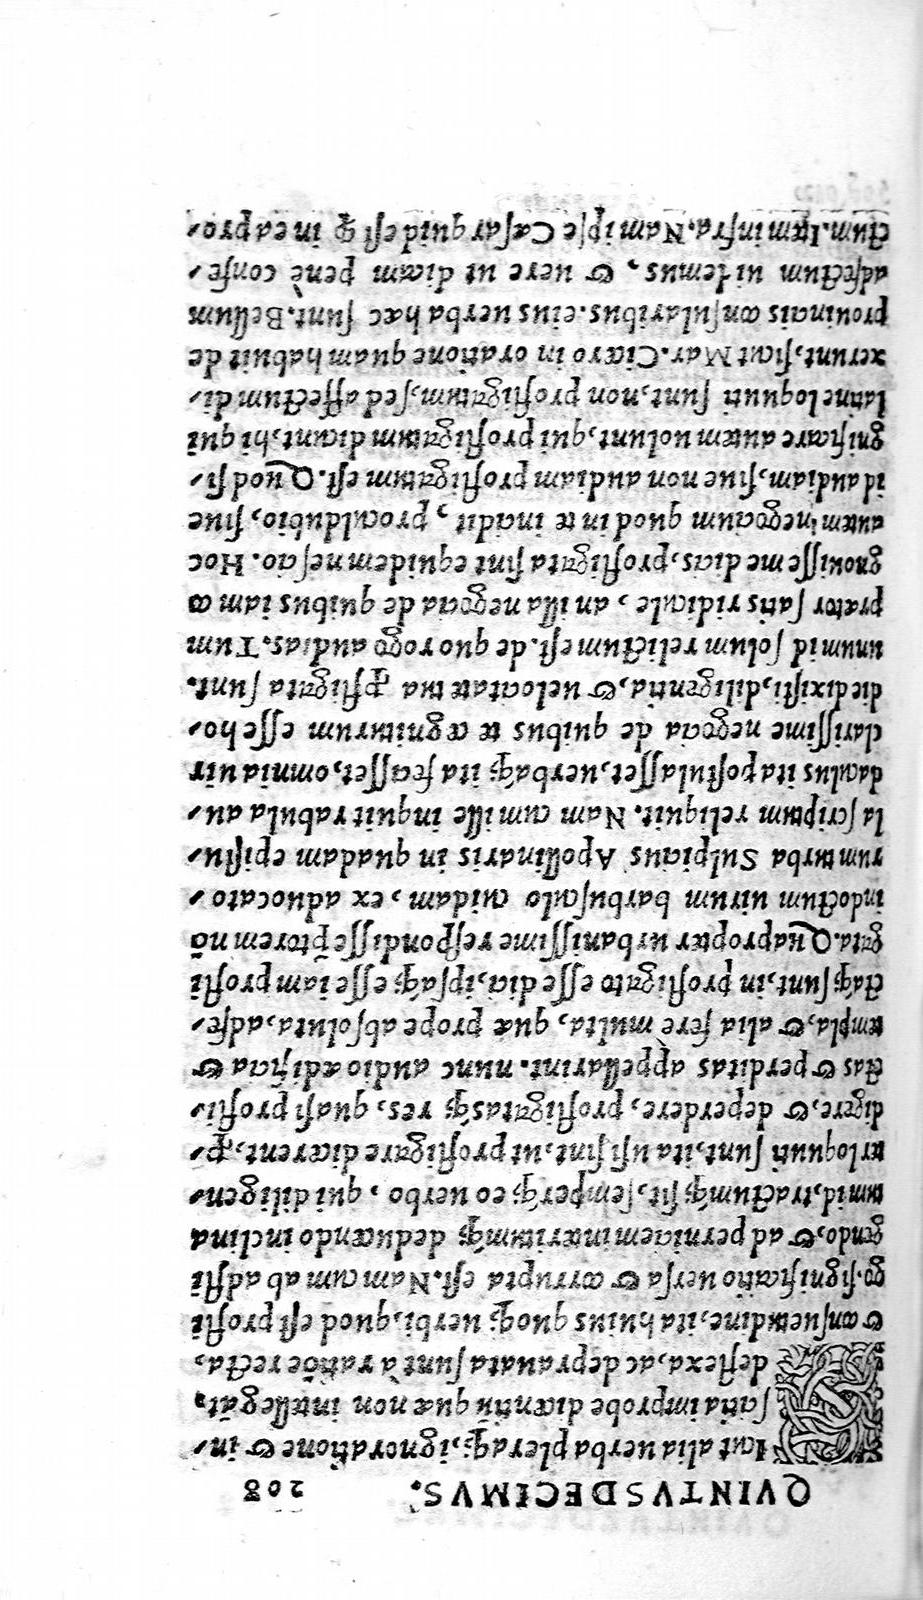 QVINTVSDECIMVS. 208
SIcut alia uerba pleraq;, ignoratione & in-
satia improbe dicentiũ quæ non intellegãt,
deflexa, ac deprauata sunt à ratiõe recta,
& consuetudine, ita huius quoq; uerbi, quod est profli
go. significatio uersa & corrupta est. Nam cum ab adfli
gendo, & ad perniciem interitumq; deducendo inclina
tum id, tractumq́; sit, semperq; eo uerbo, qui diligen-
ter loquuti sunt, ita usi sint, ut profligare dicerent, ꝓ-
digere, & deperdere, profligatasq́; res, quasi profli-
ctas & perditas appellarint. nunc audio ædificia &
templa, & alia fere multa, quæ prope absoluta, adfe-
ctaq́; sunt, in, profligato esse dici, ipsaq́; esse iam profli
gata. Quapropter urbanissime respõdisse prætorem nõ
indoctum uirum barbusculo cuidam, ex aduocato-
rum turba Sulpicius Apollinaris in quadam epistu-
la scriptum reliquit. Nam cum ille inquit rabula au-
daculus ita postulasset, uerbaq́; ita fecisset, omnia uir
clarissime negocia de quibus te cogniturum esse ho-
die dixisti, diligentia, & uelocitate tua ꝓfligata sunt.
unum id solum relictum est. de quo rogo audias. Tum
prætor satis ridicule, an illa negocia de quibus iam co
gnouisse me dicis, profligata sint equidem nescio. Hoc
autem negocium quod in te incidit, proculdubio, siue
id audiam, siue non audiam profligatum est. Quod si-
gnificare autem uolunt, qui profligatum dicunt, hi qui
latine loquuti sunt, non, profligatum, sed affectum di-
xerunt, sicut Mar. Cicero in oratione quam habuit de
prouinciis consularibus. eius uerba hæc sunt. Bellum
adfectum uidemus, & uere ut dicam penè confe-
ctum. Item infra. Nam ipse Cæsar quid est ꝙ in ea pro-